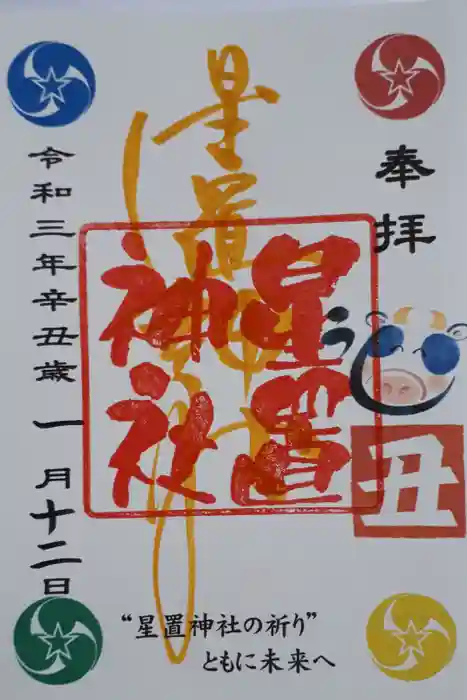 奉拝
うし
丑
星置神社
星置
神社
令和三年辛丑歳 一月十二日
“星置神社の祈り”
ともに未来へ